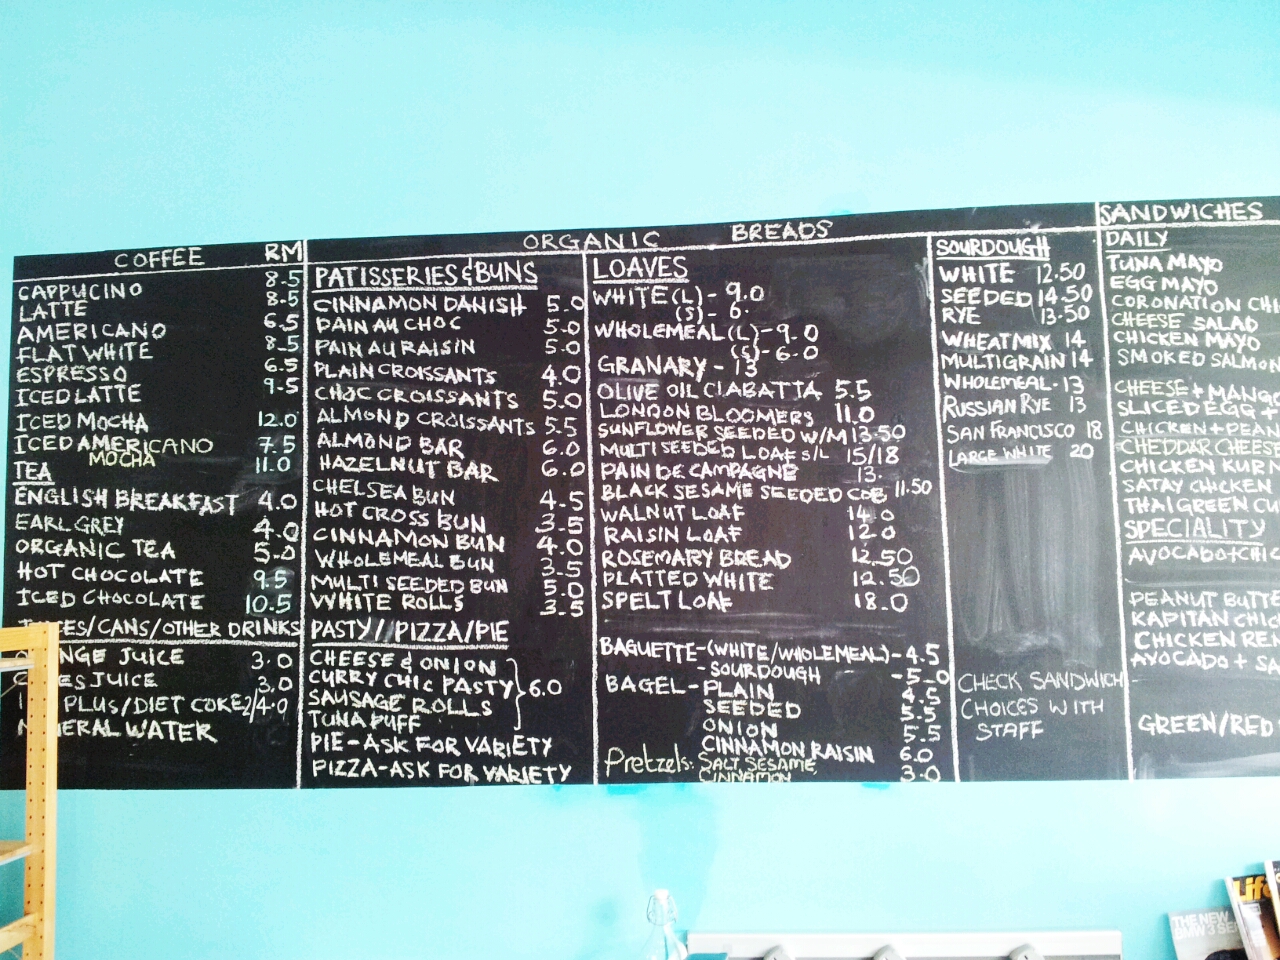 COFFEE RM
CAPPUCINO 8.5
LATTE 8.5
AMERICANO 6.5
FLAT WHITE 8.5
ESPRESSO 6.5
ICED LATTE 9.5
ICED MOCHA 12.0
ICED AMERICANO 7.5
MOCHA 11.0
TEA
ENGLISH BREAKFAST 4.0
EARL GREY 4.0
ORGANIC TEA 5.0
HOT CHOCOLATE 9.5
ICED CHOCOLATE 10.5
CES/CANS/OTHER DRINKS
NGE JUICE 3.0
ES JUICE 3.0
PLUS/DIET COKE 2/4.0
ERAL WATER
ORGANIC BREADS
PATISSERIES & BUNS
CINNAMON DANISH 5.0
PAIN AU CHOC 5.0
PAIN AU RAISIN 5.0
PLAIN CROISSANTS 4.0
CHOC CROISSANTS 5.0
ALMOND CROISSANTS 5.5
ALMOND BAR 6.0
HAZELNUT BAR 6.0
CHELSEA BUN 4.5
HOT CROSS BUN 3.5
CINNAMON BUN 4.0
WHOLEMEAL BUN 3.5
MULTI SEEDED BUN 5.0
WHITE ROLLS 3.5
PASTY/PIZZA/PIE
CHEESE & ONION
CURRY CHIC PASTY 6.0
SAUSAGE ROLLS
TUNA PUFF
PIE-ASK FOR VARIETY
PIZZA-ASK FOR VARIETY
LOAVES
WHITE (L) - 9.0
(S) - 6.
WHOLEMEAL (L) - 9.0
(S) - 6.0
GRANARY - 13
OLIVE OIL CIABATTA 5.5
LONDON BLOOMERS 11.0
SUNFLOWER SEEDED W/M 13.50
MULTI SEEDED LOAF S/L 15/18
PAIN DE CAMPAGNE 13.
BLACK SESAME SEEDED COB 11.50
WALNUT LOAF 14.0
RAISIN LOAF 12.0
ROSEMARY BREAD 12.50
PLATTED WHITE 12.50
SPELT LOAF 18.0
BAGUETTE-(WHITE/WHOLEMEAL)-4.5
-SOURDOUGH -5.0
BAGEL-PLAIN 4.5
SEEDED 5.5
ONION 5.5
CINNAMON RAISIN 6.0
Pretzels: SALT, SESAME, 3.0
CINNAMON
SOURDOUGH
WHITE 12.50
SEEDED 14.50
RYE 13.50
WHEATMIX 14
MULTIGRAIN 14
WHOLEMEAL-13
RUSSIAN RYE 13
SAN FRANCISCO 18
LARGE WHITE 20
CHECK SANDWICH
CHOICES WITH
STAFF
SANDWICHES
DAILY
TUNA MAYO
EGG MAYO
CORONATION CHI
CHEESE SALAD
CHICKEN MAYO
SMOKED SALMON
CHEESE + MANGO
SLICED EGG +
CHICKEN + PEAN
CHEDDAR CHEESE
CHICKEN KURM
SATAY CHICKEN
THAI GREEN CU
SPECIALITY
AVOCADO+CHIC
PEANUT BUTTE
KAPITAN CHIC
CHICKEN REN
AVOCADO + SA
GREEN/RED
Life
THE NEW
BMW 3 SE